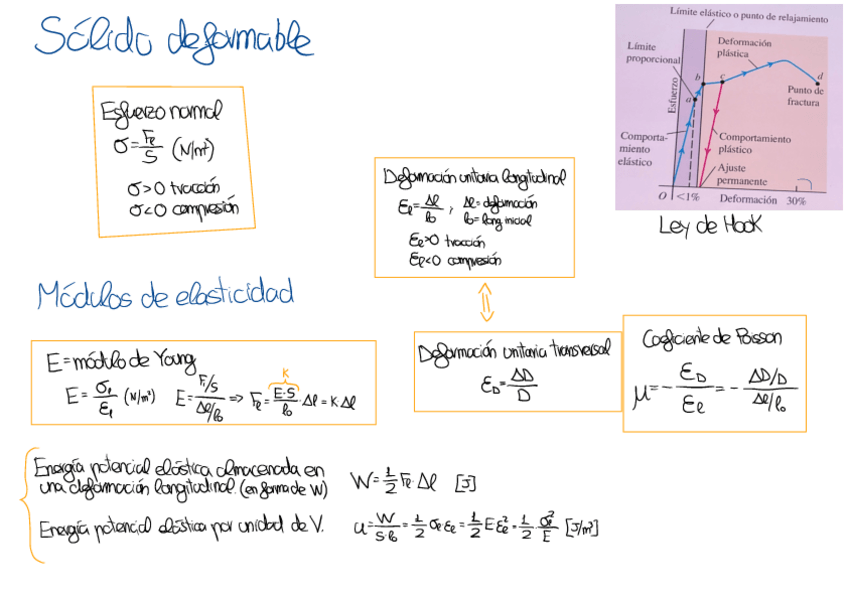 Sólido deformable
Esfuerzo normal
σ = Fℓ/S (N/m²)
σ>0 tracción
σ<0 compresión
Límite elástico o punto de relajamiento
Límite proporcional
Deformación plástica
Esfuerzo
a
b
c
d
Punto de fractura
Comporta-
miento
elástico
Comportamiento plástico
Ajuste permanente
O
<1%
Deformación
30%
Ley de Hook
Deformación unitaria longitudinal
εℓ = Δℓ/ℓ₀ , Δℓ = deformación
ℓ₀ = long inicial
εℓ>0 tracción
εℓ<0 compresión
Módulos de elasticidad
E = módulo de Young
E = σℓ/εℓ (N/m²) E = (F/S)/(Δℓ/ℓ₀) ⇒ Fℓ = E·S/ℓ₀ · Δℓ = K·Δℓ
K
Deformación unitaria transversal
ε_D = ΔD/D
Coeficiente de Poisson
μ = - ε_D/εℓ = - (ΔD/D)/(Δℓ/ℓ₀)
Energía potencial elástica almacenada en
una deformación longitudinal. (en forma de W)
W = 1/2 Fℓ · Δℓ [J]
Energía potencial elástica por unidad de V.
u = W/(S·ℓ₀) = 1/2 σℓ εℓ = 1/2 E εℓ² = 1/2 · σℓ²/E [J/m³]